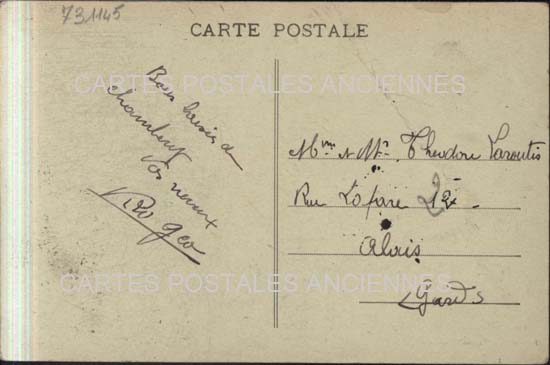 731145
CARTE POSTALE
CARTES POSTALES ANCIENNES
Bons baisers de
Chambery
Vos neveux
Geo
Mme & Mr. Theodore
Rue Lafare 12
Alais
Gard
CARTES POSTALES ANCIENNES